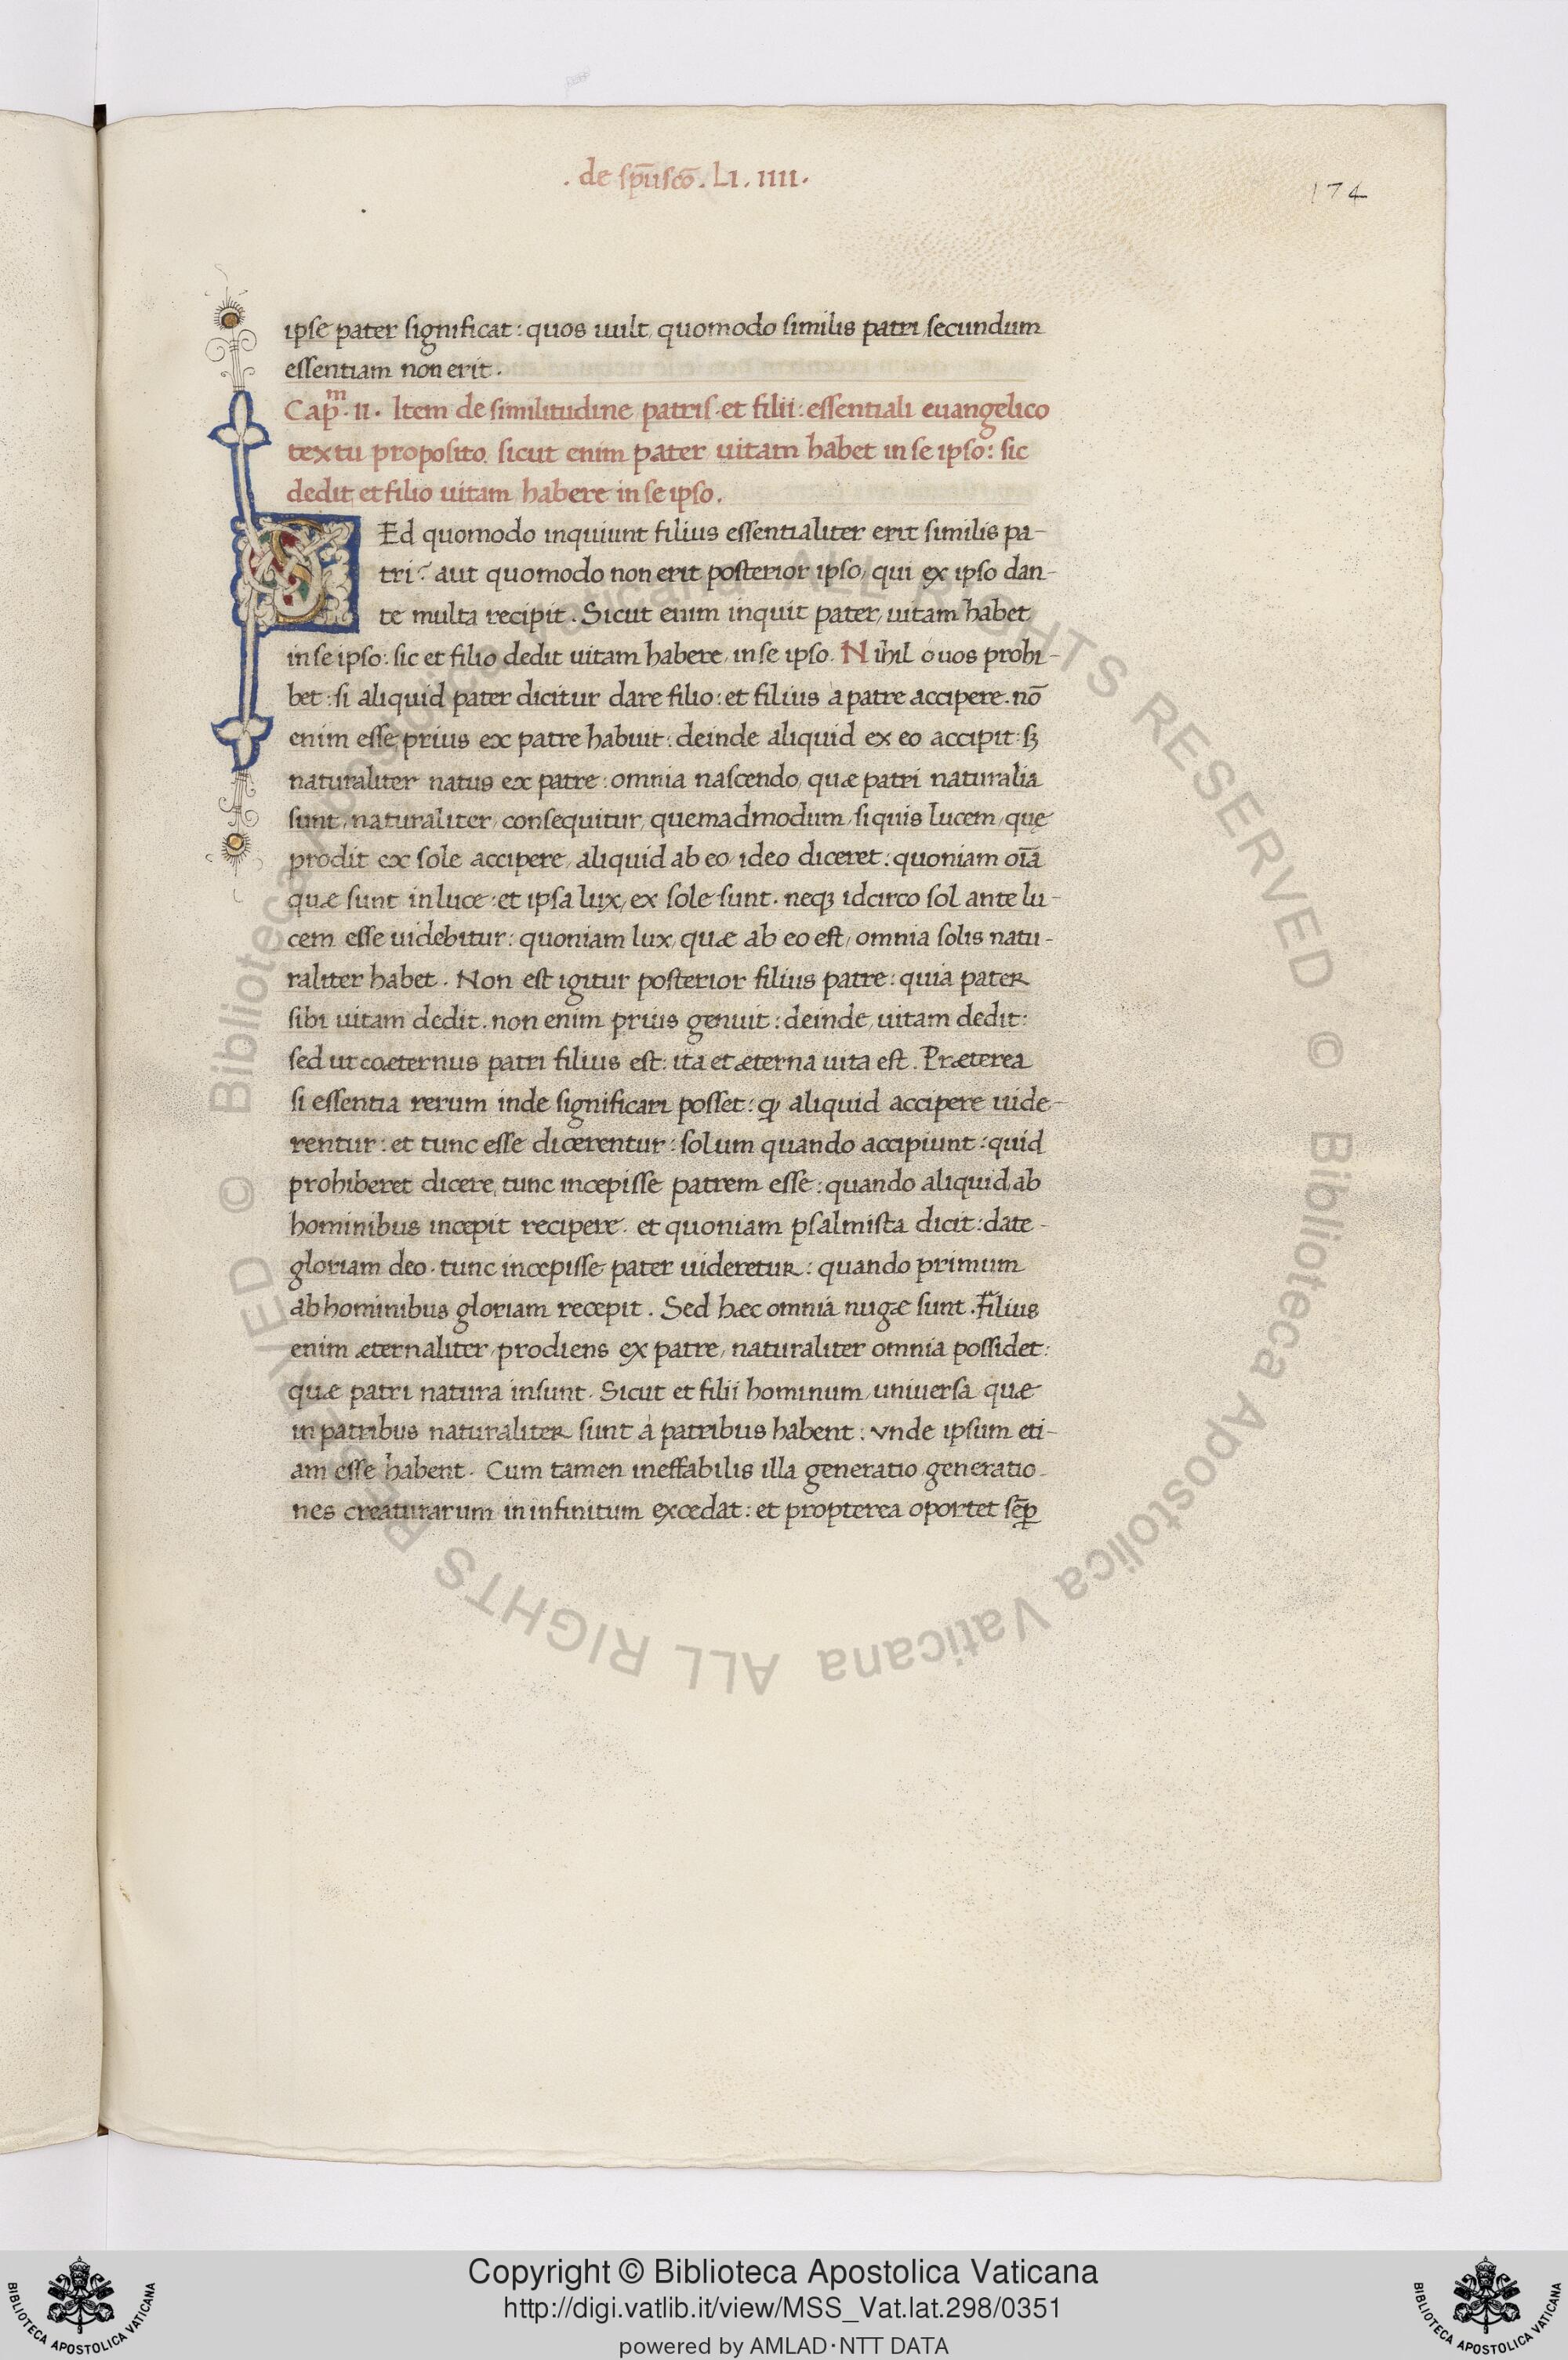 . de sp̄usco̅. Lı. ıııı.
174
ipse pater significat : quos uult, quomodo similis patri secundum
essentiam non erit .
Capᵐ. ıı. Item de similitudine patris et filii : essentiali euangelico
textu proposito. sicut enim pater uitam habet in se ipso : sic
dedit et filio uitam habere in se ipso .
SEd quomodo inquiunt filius essentialiter erit similis pa-
tri? aut quomodo non erit posterior ipso, qui ex ipso dan-
te multa recipit . Sicut enim inquit pater, uitam habet
in se ipso : sic et filio dedit uitam habere, in se ipso. Nihil o uos prohi-
bet : si aliquid pater dicitur dare filio : et filius a patre accipere . no̅
enim esse prius ex patre habuit : deinde aliquid ex eo accipit : sꝫ
naturaliter natus ex patre : omnia nascendo, quæ patri naturalia
sunt, naturaliter, consequitur, quemadmodum, si quis lucem, quę
prodit ex sole accipere, aliquid ab eo, ideo diceret : quoniam oı̅a
quæ sunt in luce : et ipsa lux, ex sole sunt . neqꝫ idcirco sol ante lu-
cem esse uidebitur : quoniam lux, quæ ab eo est, omnia solis natu-
raliter habet . Non est igitur posterior filius patre : quia pater
sibi uitam dedit . non enim prius genuit : deinde, uitam dedit :
sed ut coæternus patri filius est : ita et æterna uita est . Præterea
si essentia rerum inde significari posset : ꝙ aliquid accipere uide-
rentur : et tunc esse dicerentur : solum quando accipiunt : quid
prohiberet dicere, tunc incepisse patrem esse : quando aliquid, ab
hominibus incepit recipere . et quoniam psalmista dicit : date
gloriam deo . tunc incepisse pater uideretur : quando primum
ab hominibus gloriam recepit . Sed hæc omnia nugæ sunt . Filius
enim æternaliter, prodiens ex patre, naturaliter omnia possidet :
quæ patri natura insunt . Sicut et filii hominum, uniuersa quæ
in patribus naturaliter sunt a patribus habent : vnde ipsum eti-
am esse habent . Cum tamen ineffabilis illa generatio generatio-
nes creaturarum in infinitum excedat : et propterea oportet se̅ꝑ
© Biblioteca Apostolica Vaticana ALL RIGHTS RESERVED © Biblioteca Apostolica Vaticana ALL RIGHTS RESERVED
Copyright © Biblioteca Apostolica Vaticana
http://digi.vatlib.it/view/MSS_Vat.lat.298/0351
powered by AMLAD・NTT DATA
BIBLIOTECA APOSTOLICA VATICANA
BIBLIOTECA APOSTOLICA VATICANA